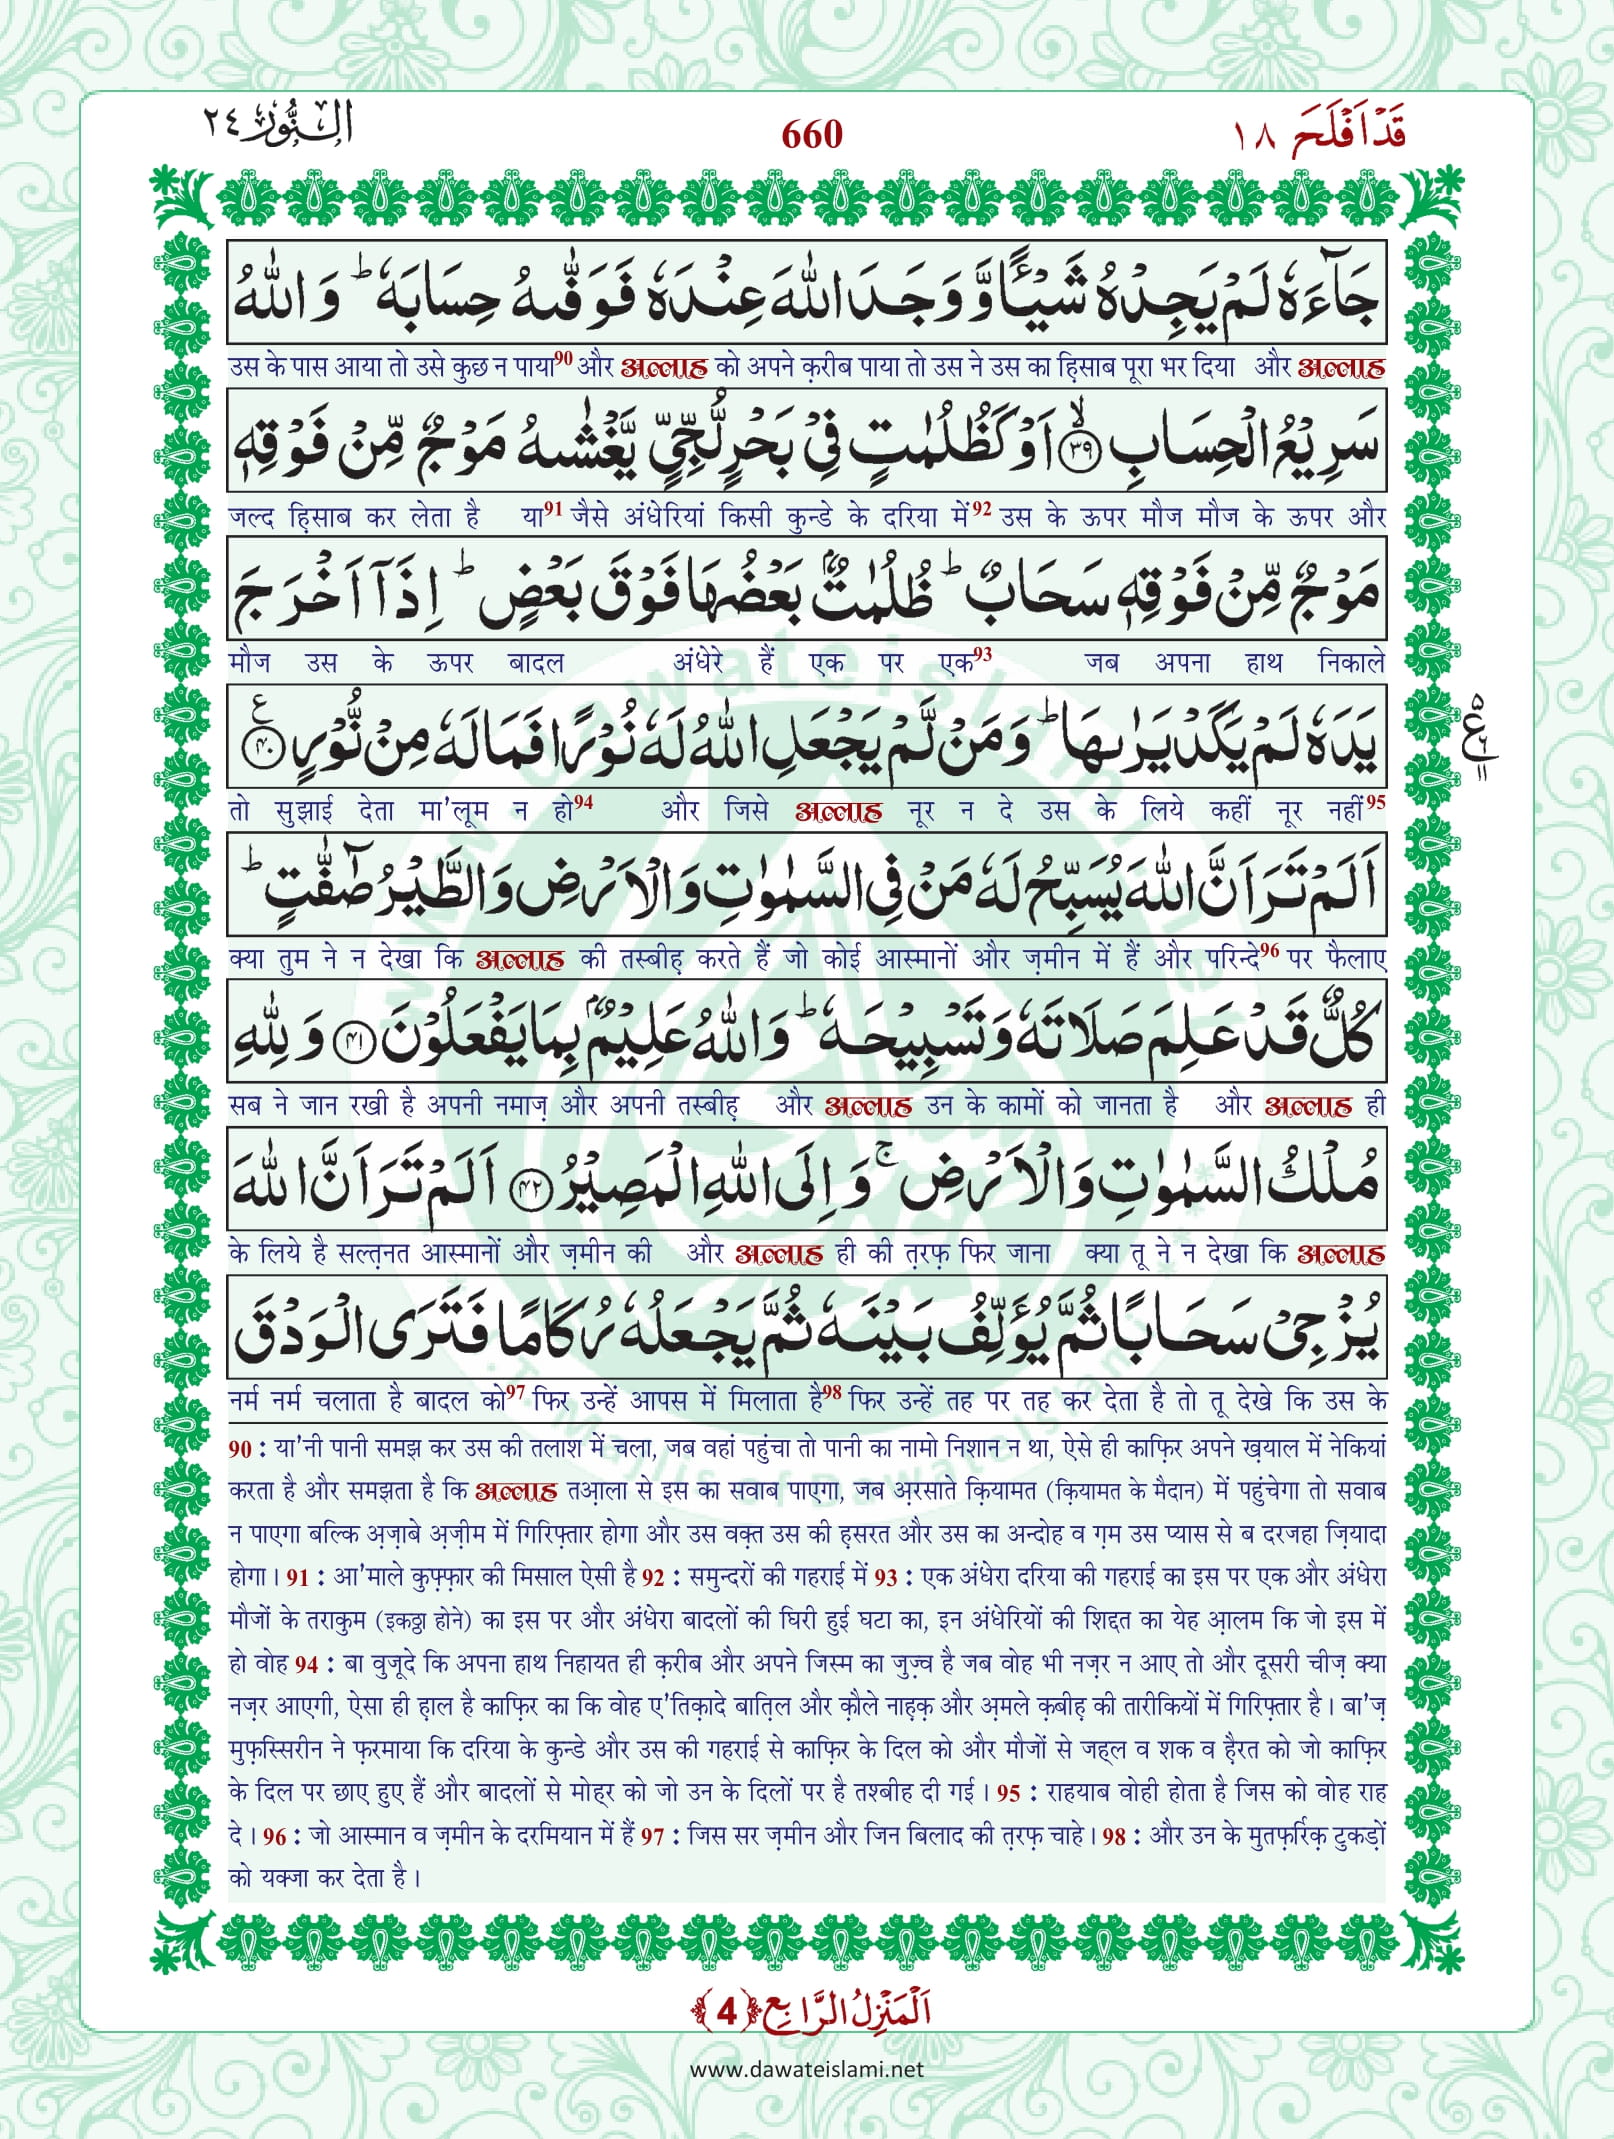 قَدْ اَفْلَحَ ١٨
660
اَلنُّوْر ٢٤
جَآءَهٗ لَمْ یَجِدْهُ شَیْـًٔا وَّ وَجَدَ اللّٰهَ عِنْدَهٗ فَوَفّٰىهُ حِسَابَهٗؕ وَ اللّٰهُ
उस के पास आया तो उसे कुछ न पाया90 और अल्लाह को अपने क़रीब पाया तो उस ने उस का ह़िसाब पूरा भर दिया और अल्लाह
سَرِیْعُ الْحِسَابِۙ(۳۹) اَوْ كَظُلُمٰتٍ فِیْ بَحْرٍ لُّجِّیٍّ یَّغْشٰىهُ مَوْجٌ مِّنْ فَوْقِهٖ
जल्द ह़िसाब कर लेता है या91 जैसे अंधेरियां किसी कुन्डे के दरिया में92 उस के ऊपर मौज मौज के ऊपर और
مَوْجٌ مِّنْ فَوْقِهٖ سَحَابٌؕ ظُلُمٰتٌۢ بَعْضُهَا فَوْقَ بَعْضٍؕ اِذَاۤ اَخْرَ جَ
मौज उस के ऊपर बादल अंधेरे हैं एक पर एक93 जब अपना हाथ निकाले
یَدَهٗ لَمْ یَكَدْ یَرٰىهَاؕ وَ مَنْ لَّمْ یَجْعَلِ اللّٰهُ لَهٗ نُوْرًا فَمَا لَهٗ مِنْ نُّوْرٍ۠(۴۰)
ع ٥ ٦ ١١
तो सुझाई देता मा'लूम न हो94 और जिसे अल्लाह नूर न दे उस के लिये कहीं नूर नहीं95
اَلَمْ تَرَ اَنَّ اللّٰهَ یُسَبِّحُ لَهٗ مَنْ فِی السَّمٰوٰتِ وَ الْاَرْضِ وَ الطَّیْرُ صٰٓفّٰتٍؕ
क्या तुम ने न देखा कि अल्लाह की तस्बीह़ करते हैं जो कोई आस्मानों और ज़मीन में हैं और परिन्दे96 पर फैलाए
كُلٌّ قَدْ عَلِمَ صَلَاتَهٗ وَ تَسْبِیْحَهٗؕ وَ اللّٰهُ عَلِیْمٌۢ بِمَا یَفْعَلُوْنَ(۴۱) وَ لِلّٰهِ
सब ने जान रखी है अपनी नमाज़ और अपनी तस्बीह़ और अल्लाह उन के कामों को जानता है और अल्लाह ही
مُلْكُ السَّمٰوٰتِ وَ الْاَرْضِۚ وَ اِلَى اللّٰهِ الْمَصِیْرُ(۴۲) اَلَمْ تَرَ اَنَّ اللّٰهَ
के लिये है सल्त़नत आस्मानों और ज़मीन की और अल्लाह ही की त़रफ़ फिर जाना क्या तू ने न देखा कि अल्लाह
یُزْجِیْ سَحَابًا ثُمَّ یُؤَلِّفُ بَیْنَهٗ ثُمَّ یَجْعَلُهٗ رُكَامًا فَتَرَى الْوَدْقَ
नर्म नर्म चलाता है बादल को97 फिर उन्हें आपस में मिलाता है98 फिर उन्हें तह पर तह कर देता है तो तू देखे कि उस के
90 : या'नी पानी समझ कर उस की तलाश में चला, जब वहां पहुंचा तो पानी का नामो निशान न था, ऐसे ही काफ़िर अपने ख़याल में नेकियां
करता है और समझता है कि अल्लाह तआ़ला से इस का सवाब पाएगा, जब अ़रसाते क़ियामत (क़ियामत के मैदान) में पहुंचेगा तो सवाब
न पाएगा बल्कि अ़ज़ाबे अ़ज़ीम में गिरिफ़्तार होगा और उस वक़्त उस की ह़सरत और उस का अन्दोह व ग़म उस प्यास से ब दरजहा ज़ियादा
होगा। 91 : आ'माले कुफ़्फ़ार की मिसाल ऐसी है 92 : समुन्दरों की गहराई में 93 : एक अंधेरा दरिया की गहराई का इस पर एक और अंधेरा
मौजों के तराकुम (इकठ्ठा होने) का इस पर और अंधेरा बादलों की घिरी हुई घटा का, इन अंधेरियों की शिद्दत का येह आ़लम कि जो इस में
हो वोह 94 : बा वुजूदे कि अपना हाथ निहायत ही क़रीब और अपने जिस्म का जुज़्व है जब वोह भी नज़र न आए तो और दूसरी चीज़ क्या
नज़र आएगी, ऐसा ही ह़ाल है काफ़िर का कि वोह ए'तिक़ादे बात़िल और क़ौले नाह़क़ और अ़मले क़बीह़ की तारीकियों में गिरिफ़्तार है। बा'ज़
मुफ़स्सिरीन ने फ़रमाया कि दरिया के कुन्डे और उस की गहराई से काफ़िर के दिल को और मौजों से जह्ल व शक व ह़ैरत को जो काफ़िर
के दिल पर छाए हुए हैं और बादलों से मोह्र को जो उन के दिलों पर है तश्बीह दी गई। 95 : राहयाब वोही होता है जिस को वोह राह
दे। 96 : जो आस्मान व ज़मीन के दरमियान में हैं 97 : जिस सर ज़मीन और जिन बिलाद की त़रफ़ चाहे। 98 : और उन के मुतफ़र्रिक़ टुकड़ों
को यक्जा कर देता है।
اَلْمَنْزِلُ الرَّابِع ﴿4﴾
www.dawateislami.net